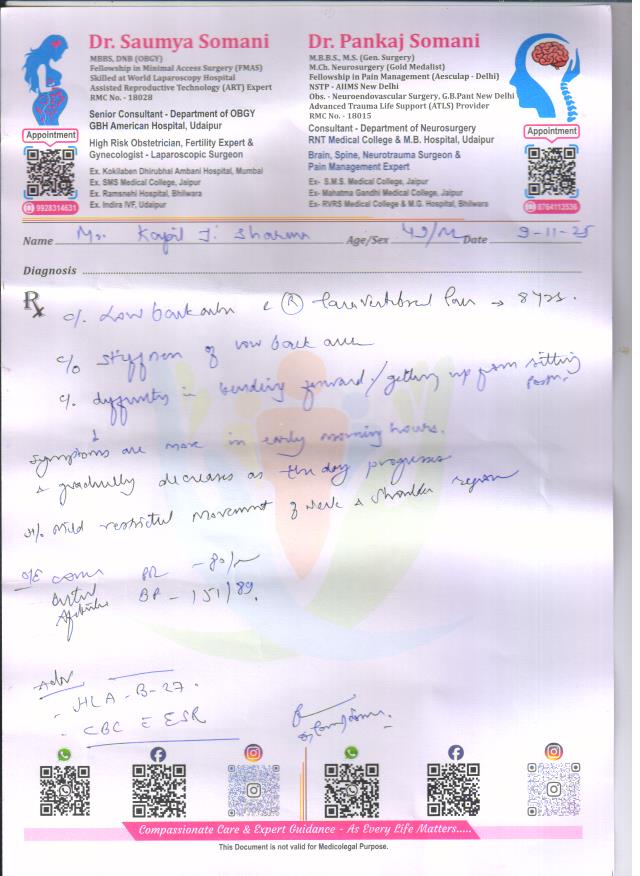 Dr. Saumya Somani
MBBS, DNB (OBGY)
Fellowship in Minimal Access Surgery (FMAS)
Skilled at World Laparoscopy Hospital
Assisted Reproductive Technology (ART) Expert
RMC No. - 18028
Senior Consultant - Department of OBGY
GBH American Hospital, Udaipur
High Risk Obstetrician, Fertility Expert &
Gynecologist - Laparoscopic Surgeon
Ex. Kokilaben Dhirubhai Ambani Hospital, Mumbai
Ex. SMS Medical College, Jaipur
Ex. Ramsnehi Hospital, Bhilwara
Ex. Indira IVF, Udaipur
Appointment
9928314631
Dr. Pankaj Somani
M.B.B.S., M.S. (Gen. Surgery)
M.Ch. Neurosurgery (Gold Medalist)
Fellowship in Pain Management (Aesculap - Delhi)
NSTP - AIIMS New Delhi
Obs. - Neuroendovascular Surgery, G.B.Pant New Delhi
Advanced Trauma Life Support (ATLS) Provider
RMC No. - 18015
Consultant - Department of Neurosurgery
RNT Medical College & M.B. Hospital, Udaipur
Brain, Spine, Neurotrauma Surgeon &
Pain Management Expert
Ex- S.M.S. Medical College, Jaipur
Ex- Mahatma Gandhi Medical College, Jaipur
Ex- RVRS Medical College & M.G. Hospital, Bhilwara
Appointment
8764113536
Name Mr. Kapil J. Sharma Age/Sex 49/M Date 9-11-25
Diagnosis
Rx c/o Low back (R) Paravertebral Pain → 8 yrs.
c/o stiffness of low back area
c/o in bending forward/getting up from sitting
Symptoms are more in early morning hours.
& gradually decreases as the day progresses
Mild restricted movement of neck & shoulder region
O/E PR - 80/m
BP - 151/89.
Adv
- HLA-B-27.
- CBC ESR
Compassionate Care & Expert Guidance - As Every Life Matters.....
This Document is not valid for Medicolegal Purpose.